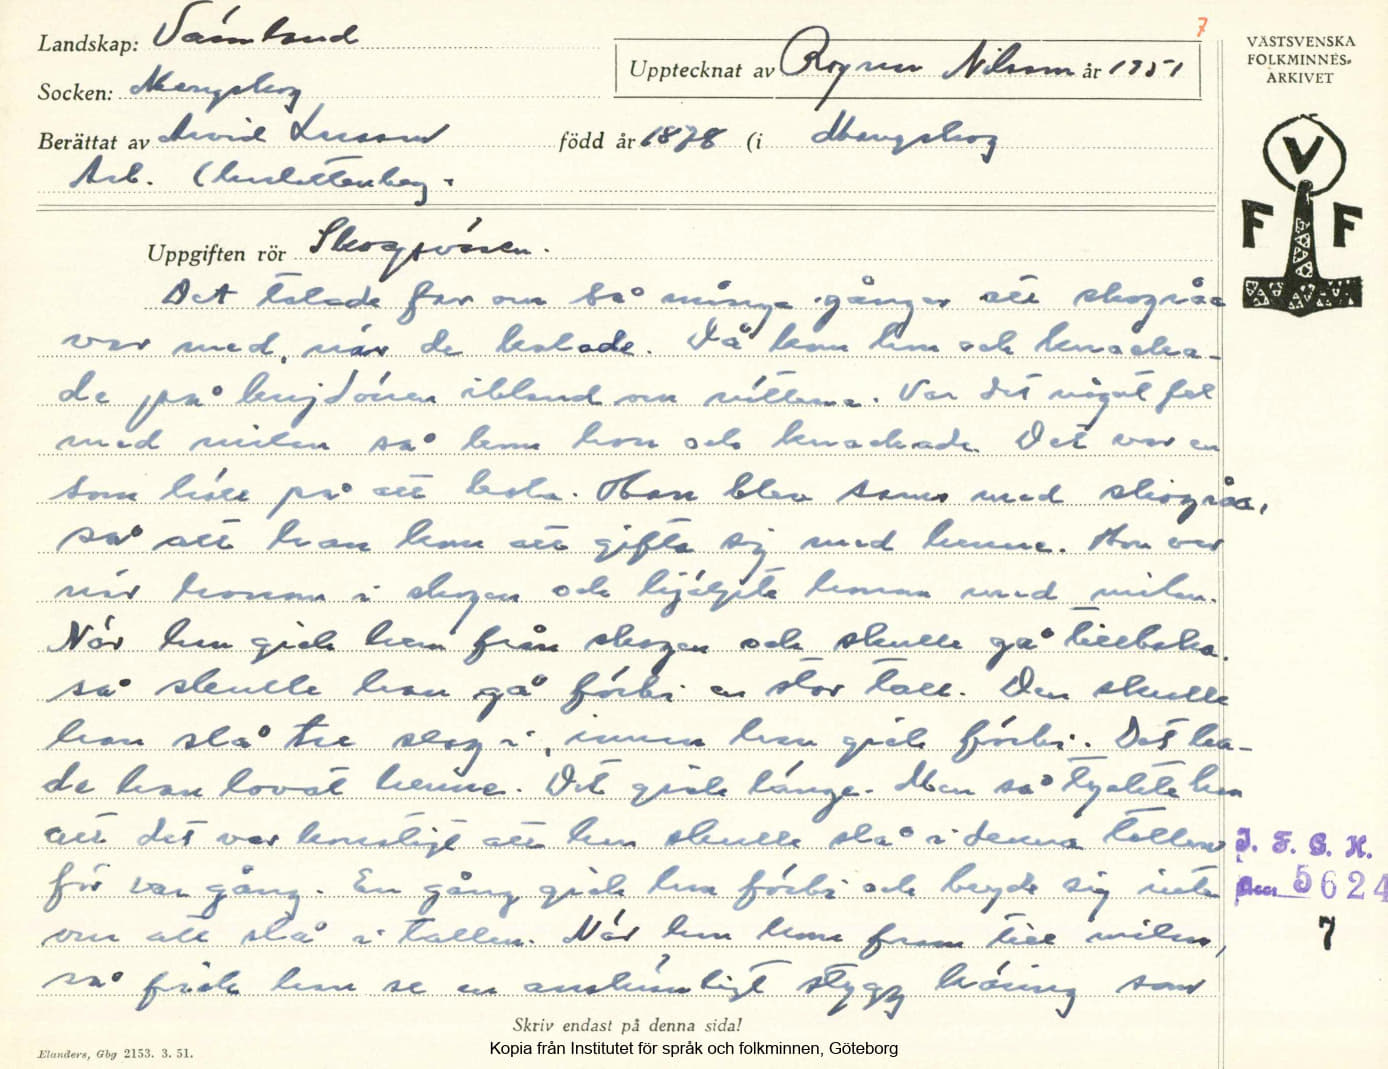 7
Landskap: Värmland
Upptecknat av Ragnar Nilsson år 1951
VÄSTSVENSKA
FOLKMINNES-
ARKIVET
Socken: Mangskog
Berättat av Arvid Larsson född år 1878 (i Mangskog
Arb. Charlottenberg.
V
F F
Uppgiften rör Skogsväsen.
Det talade far om så många gånger att skogråa
var med, när de kolade. Då kom hon och knacka-
de på kojdören ibland om nätterna. Var det något fel
med milan så kom hon och knackade. Det var en
som höll på att kola. Han blev sams med skogråa,
så att han kom att gifta sig med henne. Hon var
när honom i skogen och hjälpte honom med milan.
När han gick hem från skogen och skulle gå tillbaka.
så skulle han gå förbi en stor tall. Den skulle
han slå tre slag i, innan han gick förbi. Det ha-
de han lovat henne. Det gick länge. Men så tyckte han
att det var konstigt att han skulle slå i denna tallen
för var gång. En gång gick han förbi och brydde sig inte
om att slå i tallen. När han kom fram till milan,
så fick han se en anskrämligt stygg käring som
I. F. G. H.
Acc. 5624
7
Skriv endast på denna sida!
Elanders, Gbg 2153. 3. 51.
Kopia från Institutet för språk och folkminnen, Göteborg